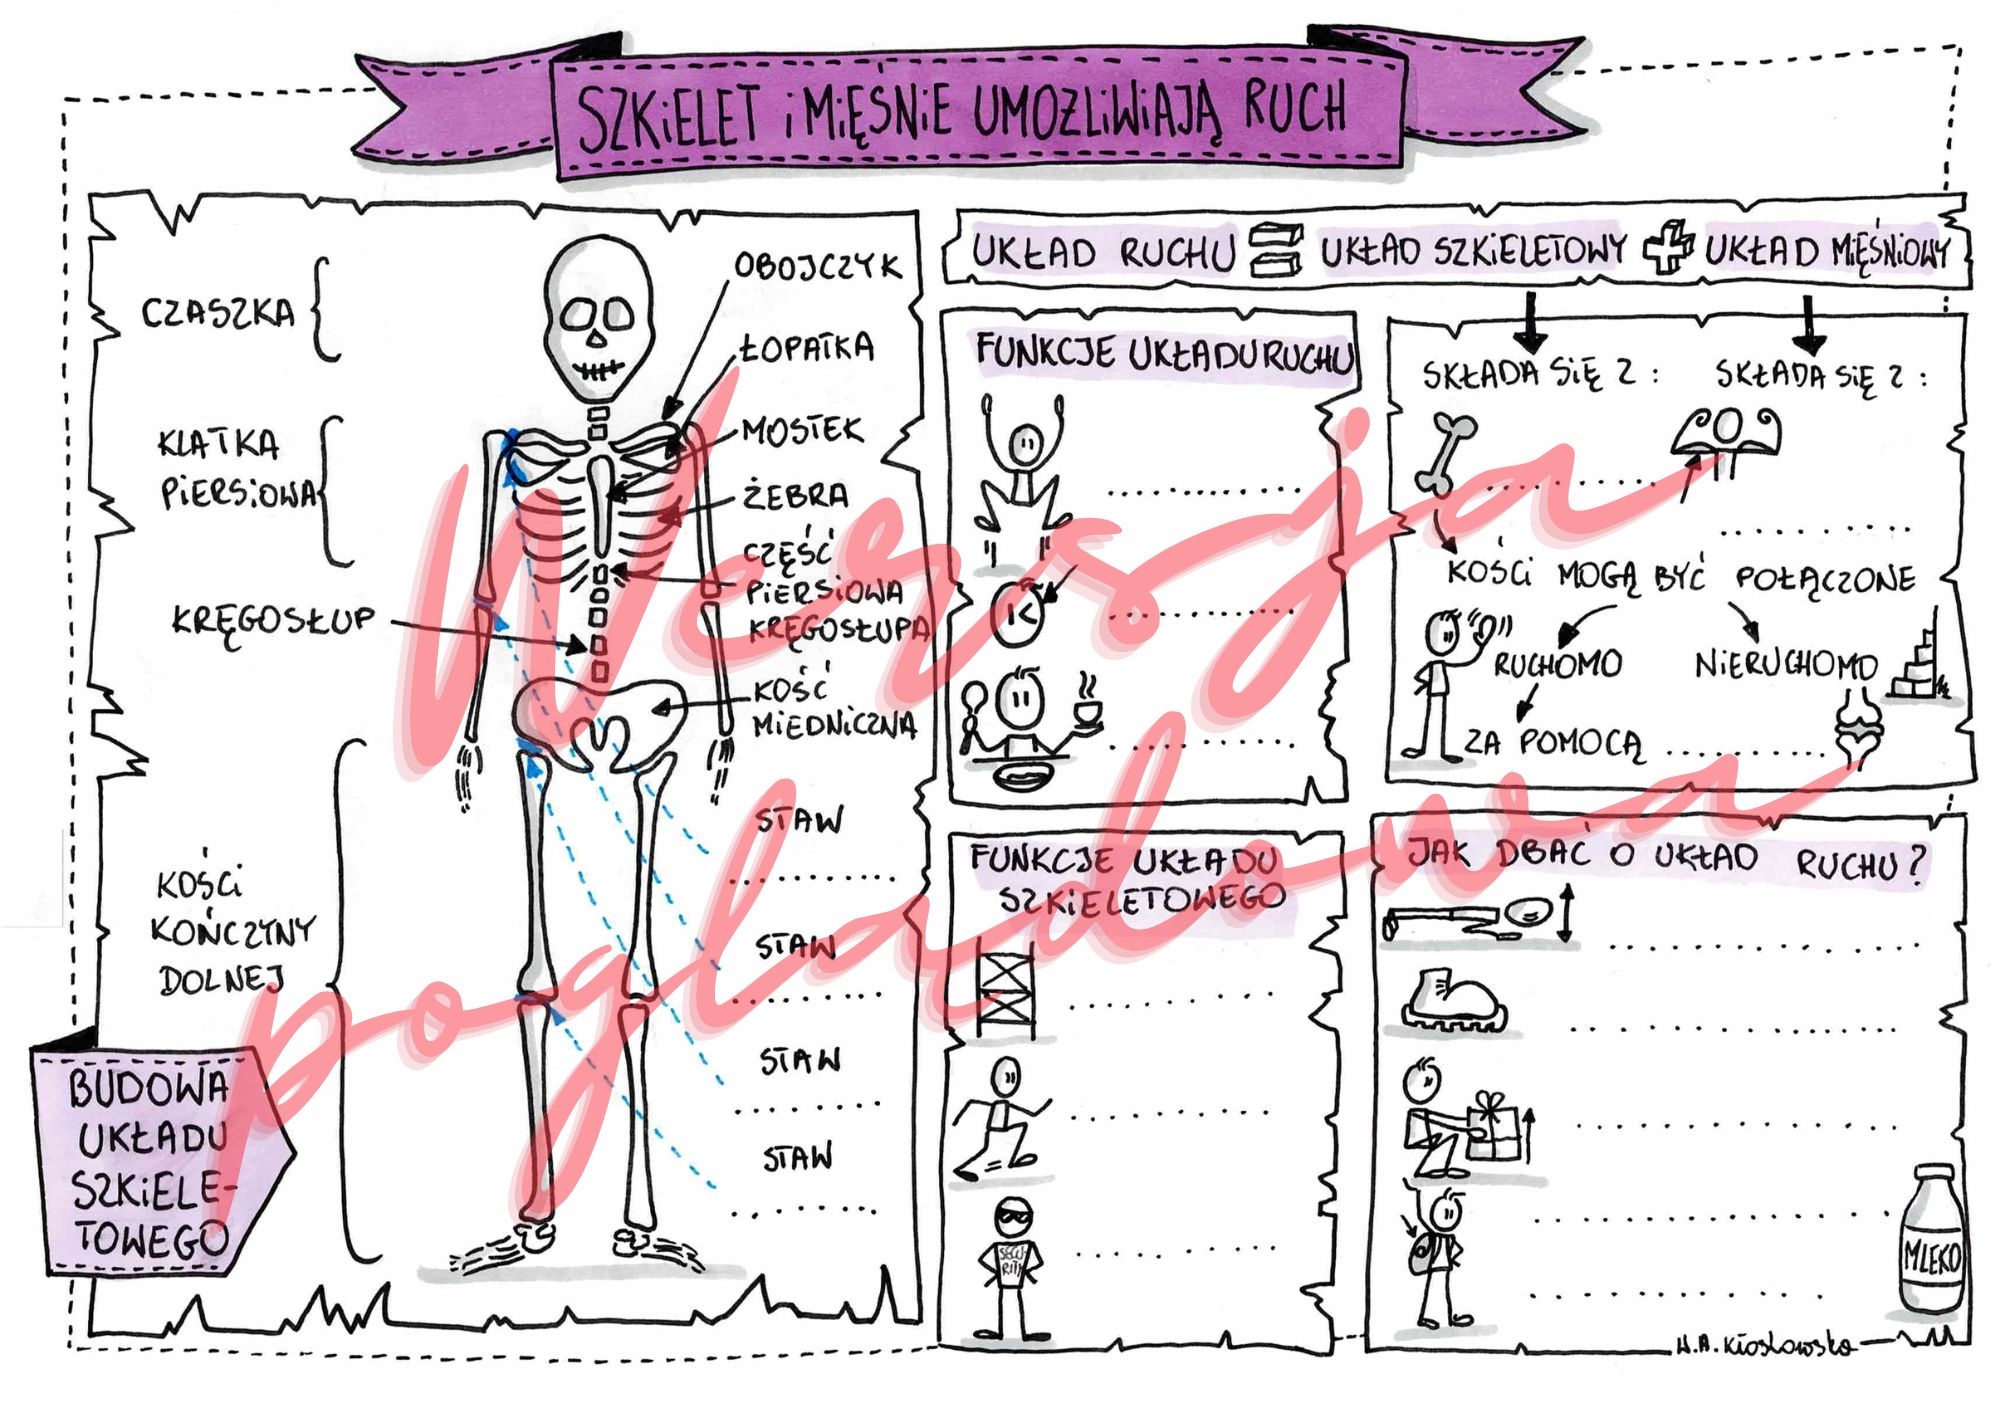 SZKiELET i MiĘŚNiE UMOŻLiWiAJĄ RUCH
CZASZKA
KLATKA
PiERSiOWA
KRĘGOSŁUP
KOŚCi
KOŃCZYNY
DOLNEJ
BUDOWA
UKŁADU
SZKiELE-
TOWEGO
OBOJCZYK
ŁOPATKA
MOSTEK
ŻEBRA
CZĘŚĆ
PiERSiOWA
KRĘGOSŁUPA
KOŚĆ
MiEDNiCZNA
STAW
..............
STAW
..............
STAW
..............
STAW
..............
UKŁAD RUCHU = UKŁAD SZKiELETOWY + UKŁAD MiĘŚNiOWY
FUNKCJE UKŁADU RUCHU
..............
..............
..............
SKŁADA SiĘ Z :
SKŁADA SiĘ Z :
..............
..............
KOŚCi MOGĄ BYĆ POŁĄCZONE
RUCHOMO
NiERUCHOMO
ZA POMOCĄ ............
FUNKCJE UKŁADU
SZKiELETOWEGO
..............
..............
SECU-
RiTY
..............
JAK DBAĆ O UKŁAD RUCHU?
..............
..............
..............
..............
..............
MLEKO
Wersja
poglądowa